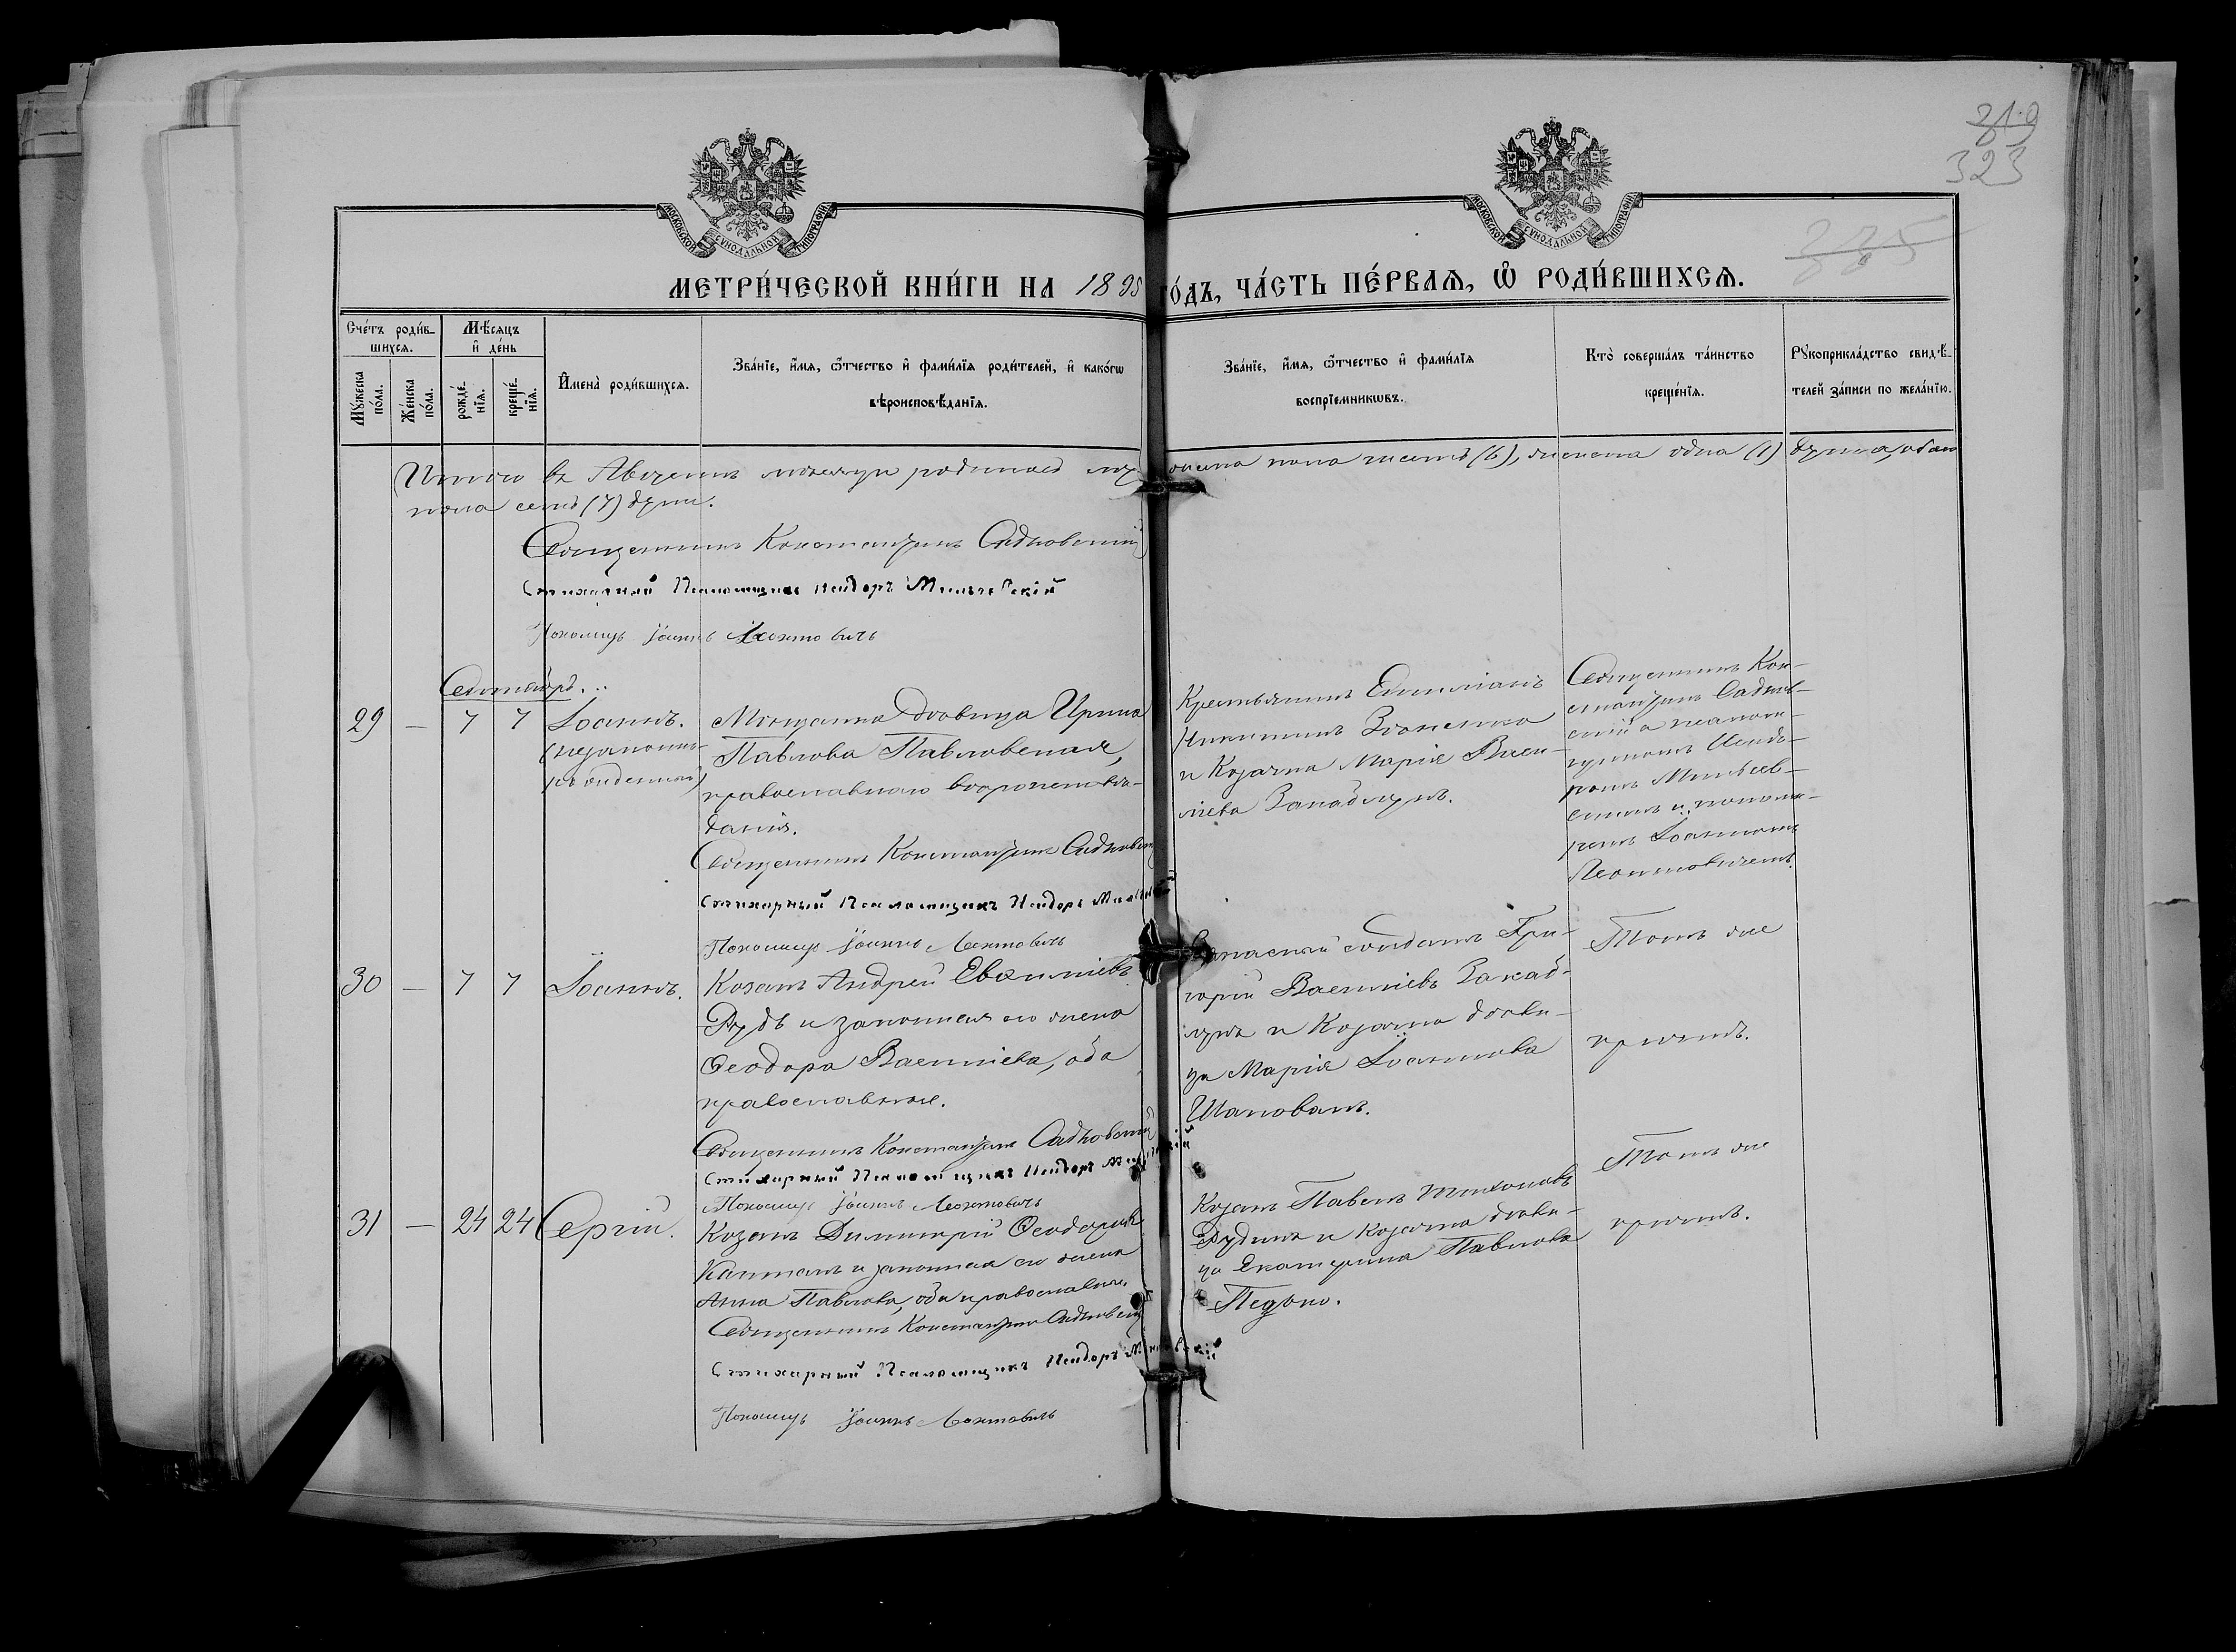 219
323
335
МОСКОВСКОЙ СѴНОДАЛЬНОЙ ТИПОГРАФІИ
МОСКОВСКОЙ СѴНОДАЛЬНОЙ ТИПОГРАФІИ
МЕТРИ́ЧЕСКОЙ КНИ́ГИ НА 1895 ГО́ДЪ, ЧА́СТЬ ПЕ́РВАѦ, Ѡ҆ РОДИ́ВШИХСѦ.
Сче́тъ роди́в-
шихсѧ.
Мꙋ́жеска по́ла.
Же́нска по́ла.
Мѣ́сѧцъ
и҆ де́нь
рожде́-
нїѧ.
креще́-
нїѧ.
И҆мена̀ роди́вшихсѧ.
Зва́нїе, и҆́мѧ, ѻ҆́тчество и҆ фами́лїѧ роди́телей, и҆ како́гѡ
вѣроисповѣ́данїѧ.
Зва́нїе, и҆́мѧ, ѻ҆́тчество и҆ фами́лїѧ
воспрїе́мникѡвъ.
Кто̀ соверша́лъ та́инство
креще́нїѧ.
Рꙋкоприкла́дство свидѣ́-
телей за́писи по жела́нїю.
Итого въ Августѣ мѣсяцѣ родилось мужеска пола шесть (6), женска одна (1) душа, обоего
пола семь (7) душъ.
Священникъ Константинъ Садковскій
Стихарный Псаломщикъ Исидоръ
Пономарь Іоаннъ Леонтовичъ
Сентябрь.
29 — 7 7 Іоаннъ. (незаконно-
рожденный)
Мѣщанка вдовица Ирина
Павлова Павловская,
православнаго вѣроисповѣ-
данія.
Священникъ Константинъ Садковскій
Стихарный Псаломщикъ Исидоръ
Пономарь Іоаннъ Леонтовичъ
Крестьянинъ Емиліанъ
Никитинъ
и Козачка Марія Васи-
ліева Закаблукъ.
Священникъ Кон-
стантинъ Садков-
скій съ псалом-
щикомъ Исидо-
ромъ
и понома-
ремъ Іоанномъ
Леонтовичемъ.
30 — 7 7 Іоаннъ.
Козакъ Андрей Евѳиміевъ
Рудь и законная его жена
Ѳеодора Васильева, оба
православные.
Священникъ Константинъ Садковскій
Стихарный Псаломщикъ Исидоръ
Пономарь Іоаннъ Леонтовичъ
Запасный солдатъ Гри-
горій Васильевъ Закаб-
лукъ и Козачка вдови-
ца Марія Іоаннова
Шаповалъ.
Тотъ же
причтъ.
31 — 24 24 Сергій.
Козакъ Димитрій Ѳеодоровъ
и законная его жена
Анна Павлова, оба православные.
Священникъ Константинъ Садковскій
Стихарный Псаломщикъ Исидоръ
Пономарь Іоаннъ Леонтовичъ
Козакъ Павелъ Тихоновъ
и Козачка вдови-
ца Екатерина Павлова
Тотъ же
причтъ.